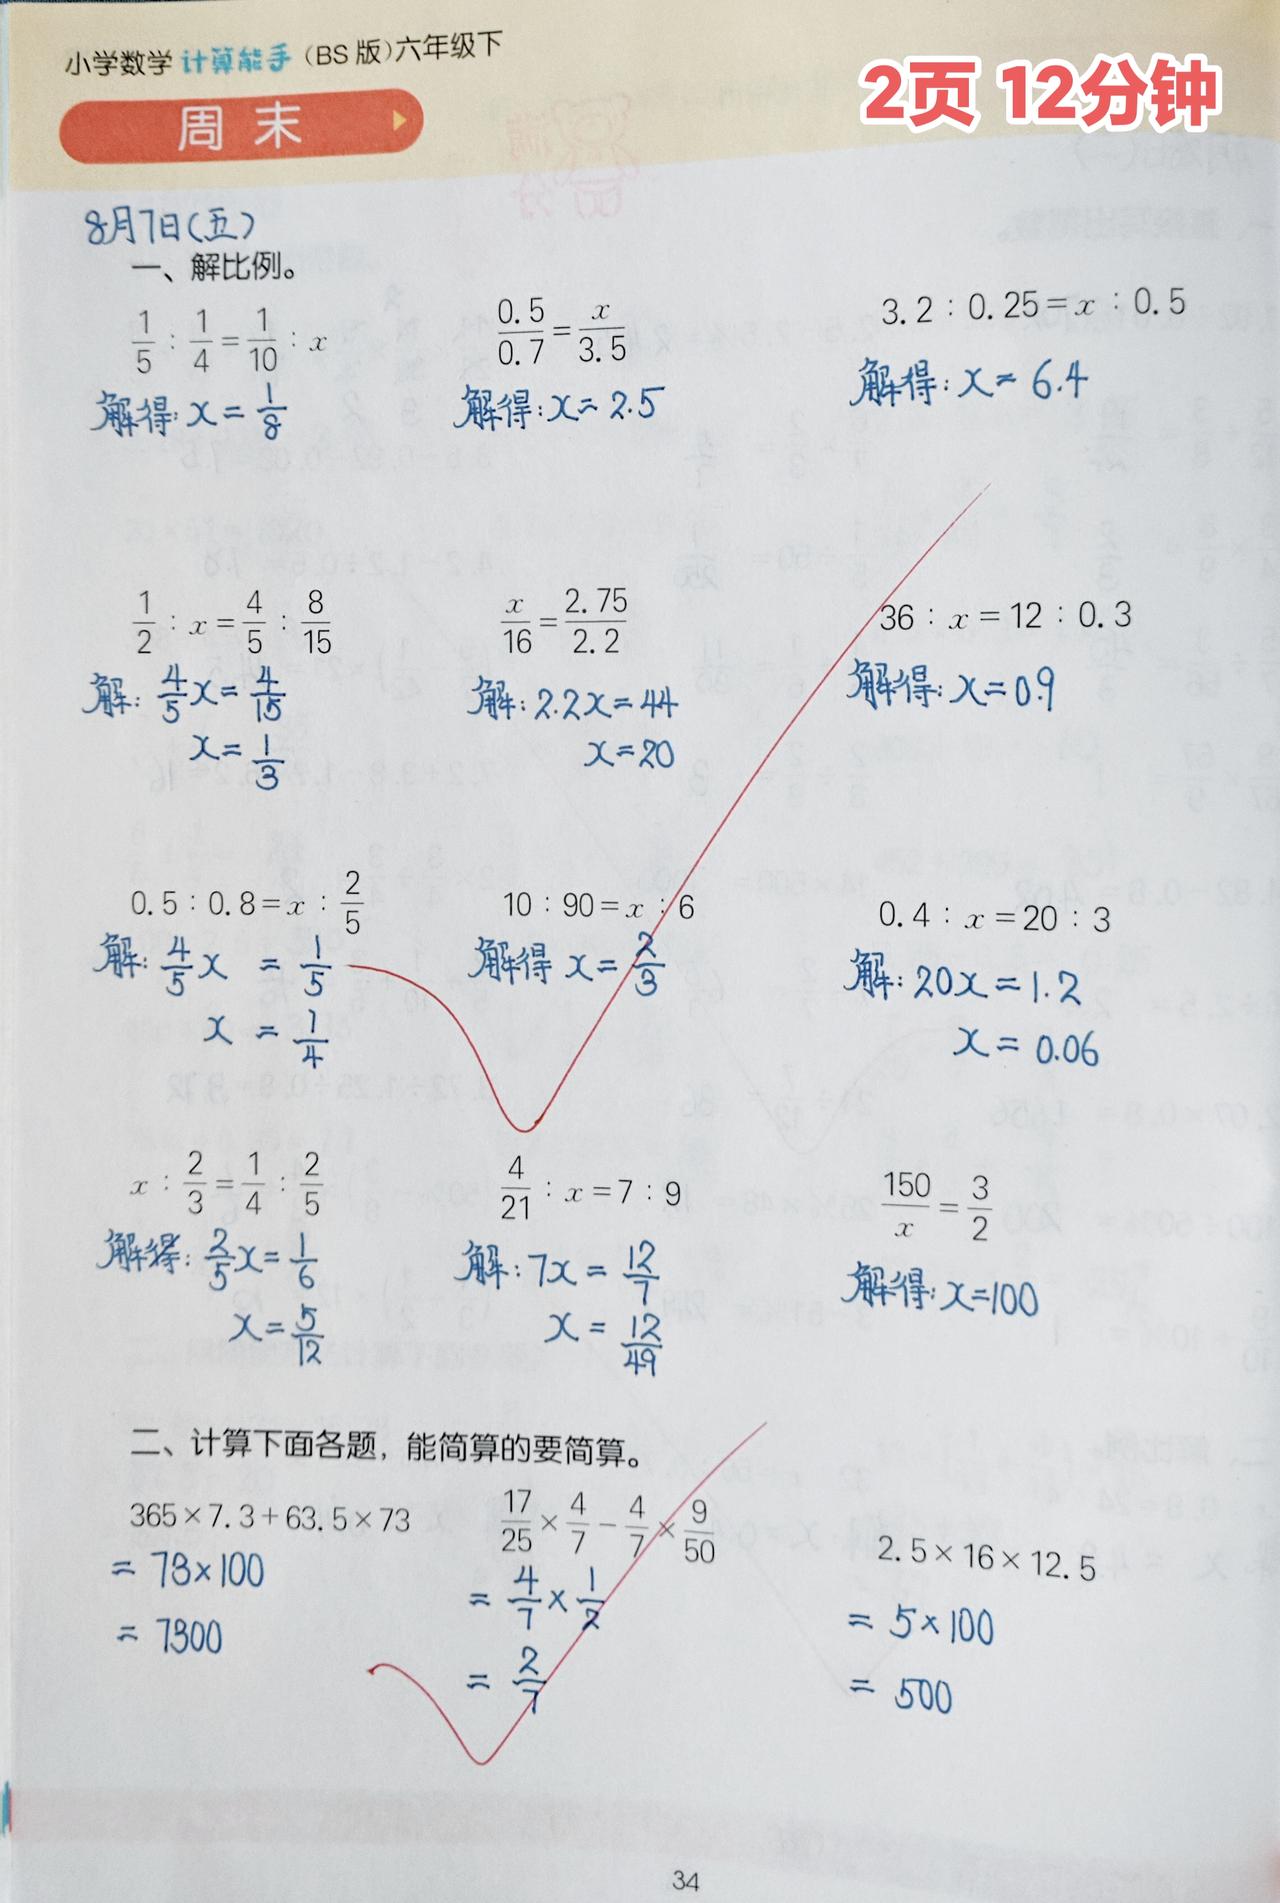 小学数学 计算能手（BS 版）六年级下
2页 12分钟
周 末
8月7日(五)
一、解比例。
1/5 : 1/4 = 1/10 : x
0.5/0.7 = x/3.5
3.2 : 0.25 = x : 0.5
解得: x = 1/8
解得: x = 2.5
解得: x = 6.4
1/2 : x = 4/5 : 8/15
x/16 = 2.75/2.2
36 : x = 12 : 0.3
解: 4/5 x = 4/15
x = 1/3
解: 2.2x = 44
x = 20
解得: x = 0.9
0.5 : 0.8 = x : 2/5
10 : 90 = x : 6
0.4 : x = 20 : 3
解: 4/5 x = 1/5
x = 1/4
解得 x = 2/3
解: 20x = 1.2
x = 0.06
x : 2/3 = 1/4 : 2/5
4/21 : x = 7 : 9
150/x = 3/2
解得: 2/5 x = 1/6
x = 5/12
解: 7x = 12/7
x = 12/49
解得: x = 100
二、计算下面各题，能简算的要简算。
365×7.3+63.5×73
17/25 × 4/7 − 4/7 × 9/50
2.5×16×12.5
= 73×100
= 7300
= 4/7 × 1/2
= 2/7
= 5×100
= 500
34